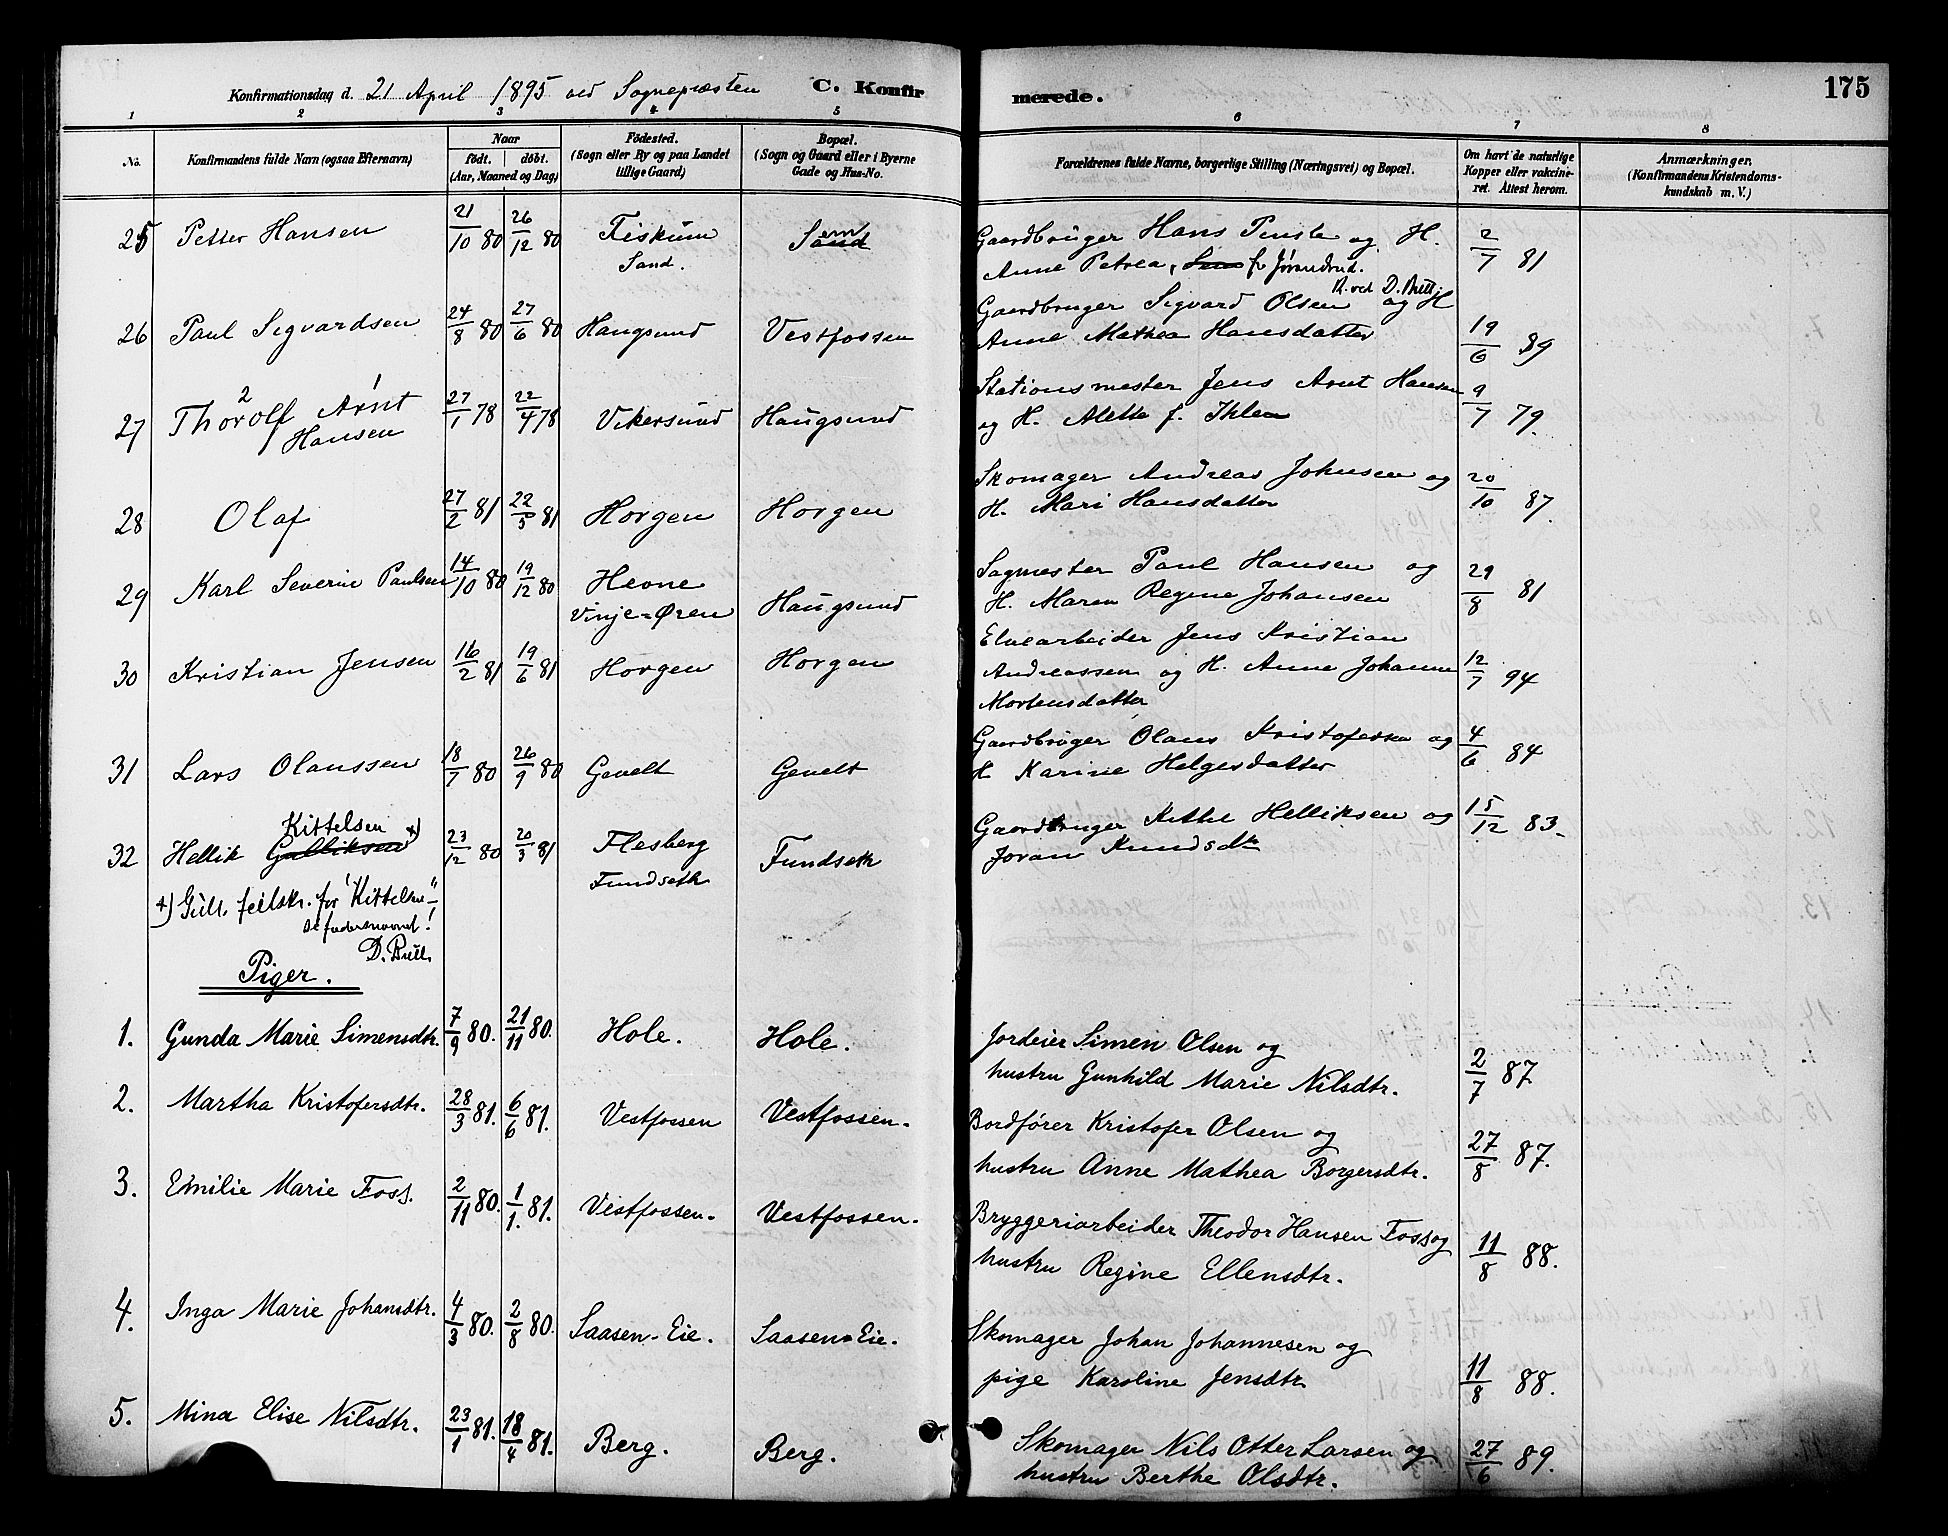 Konfirmationsdag d. 21 April 1895 ved Sognepræsten C. Konfirmerede. 175
1 2 3 4 5 6 7 8
No.
Konfirmandens fulde Navn (ogsaa Efternavn)
Naar
födt. döbt.
(Aar, Maaned og Dag)
Födested.
(Sogn eller By og paa Landet
tillige Gaard)
Bopæl.
(Sogn og Gaard eller i Byerne
Gade og Hus-No.
Forældrenes fulde Navne, borgerlige Stilling (Næringsvei) og Bopæl.
Om havt de naturlige
Kopper eller vakcine-
ret. Attest herom.
Anmærkninger,
(Konfirmandens Kristendoms-
kundskab m. V.)
25 Petter Hansen 21/10 80 26/12 80 Fiskum Sand. Gaardbruger Hans og H. 2/7 81
Anne Petrea, f.
D. Bull
26 Paul Sigvardsen 24/8 80 27/6 80 Haugsund Vestfossen Gaardbruger Sigvard Olsen og H
Anne Mathea Hansdatter 19/6 89
27 Thorolf 2 Arnt 1 Hansen 27/1 78 22/4 78 Vikersund Haugsund Stationsmester Jens Arnt Hansen
og H. Alette f. Ihlen 9/7 79.
28 Olaf 27/2 81 22/5 81 Horgen Horgen Skomager Andreas Johnsen og
H. Mari Hansdatter 20/10 87.
29 Karl Severin Paulsen 14/10 80 19/12 80 Hevne Vinje-Øren Haugsund Sagmester Paul Hansen og
H. Maren Regine Johansen 29/8 81
30 Kristian Jensen 16/2 81 19/6 81 Horgen Horgen Elvearbeider Jens Kristian
Andreassen og H. Anne Johanne 12/7 94
Mortensdatter
31 Lars Olanssen 18/7 80 26/9 80 Gevelt Gevelt Gaardbruger Olans Kristofersen og
H Karine Helgesdatter 4/6 84
Kittelsen
32 Hellik Gulliksen +) 23/12 80 20/3 81 Flesberg Fundseth Fundseth Gaardbruger Kittel Helliksen og
Joran Knudsdtr 15/12 83.
+) Gull. feilskr. for "Kittelsen"
faderenavnet!
D. Bull.
Piger.
1. Gunda Marie Simensdtr. 7/9 80. 21/11 80. Hole. Hole. Jordeier Simen Olsen og
hustru Gunhild Marie Nilsdtr. 2/7 87
2. Martha Kristofersdtr. 28/3 81. 6/6 81. Vestfossen Vestfossen. Bordfører Kristofer Olsen og
hustru Anne Mathea Borgersdtr. 27/8 87.
3. Emilie Marie Foss. 2/11 80. 1/1. 81. Vestfossen. Vestfossen. Bryggeriarbeider Theodor Hansen Foss og
hustru Regine Ellensdtr. 11/8 88.
4. Inga Marie Johansdtr. 4/3 80. 2/8 80. Saasen-Eie. Saasen-Eie. Skomager Johan Johannesen og
pige Karoline Jensdtr 11/8 88.
5. Mina Elise Nilsdtr. 23/1 81. 18/4 81. Berg. Berg. Skomager Nils Otter Larsen og
hustru Berthe Olsdtr. 27/6 89.